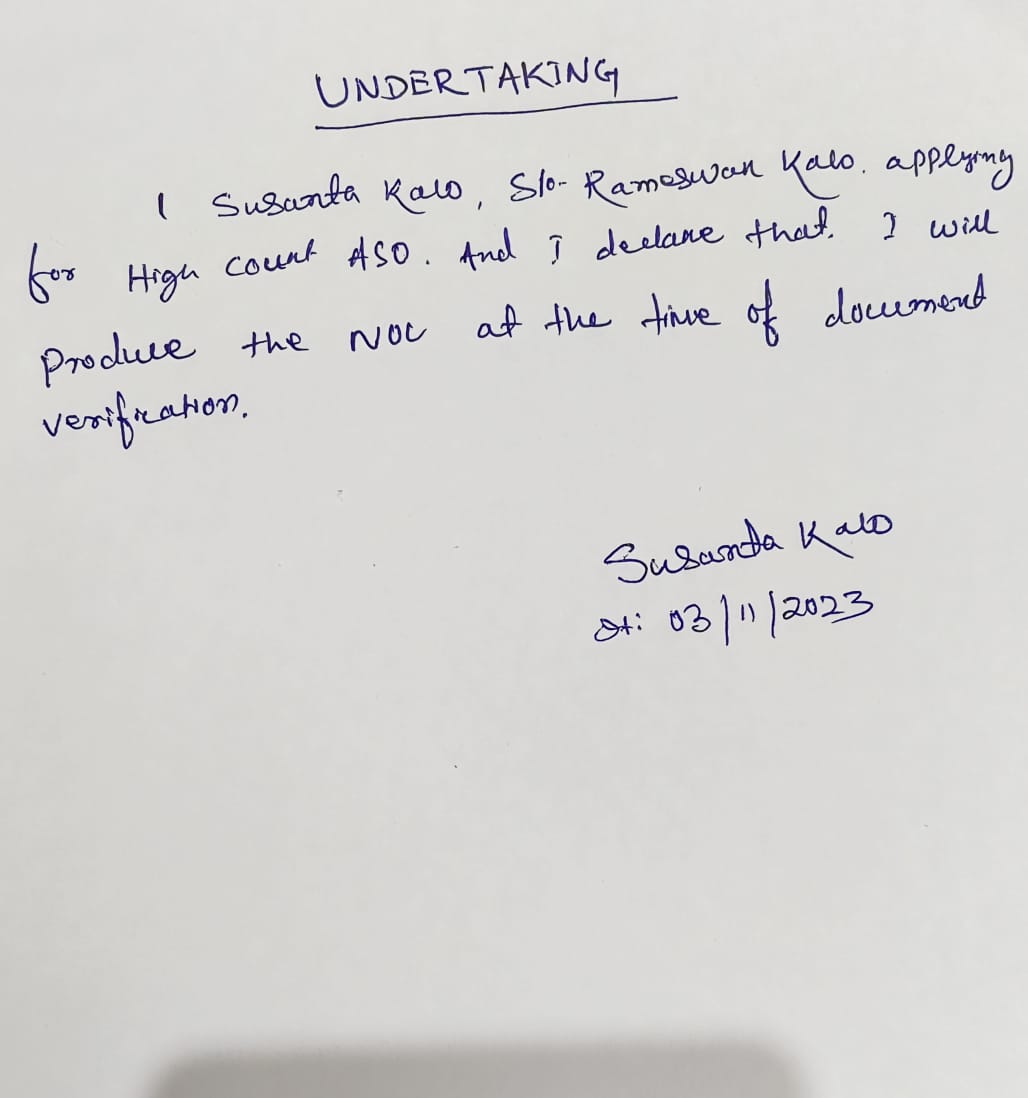 UNDERTAKING
I Susanta Kalo, S/o- Rameswar Kalo. applying
for High Court ASO. And I declare that. I will
Produce the NOC at the time of document
verification.
Susanta Kalo
Dt: 03/11/2023